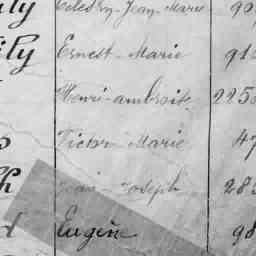 Jean Marie 90
ily Ernest Marie 91
Henri-ambroise 225
Victor Marie 47
Joseph 28
Eugène 98